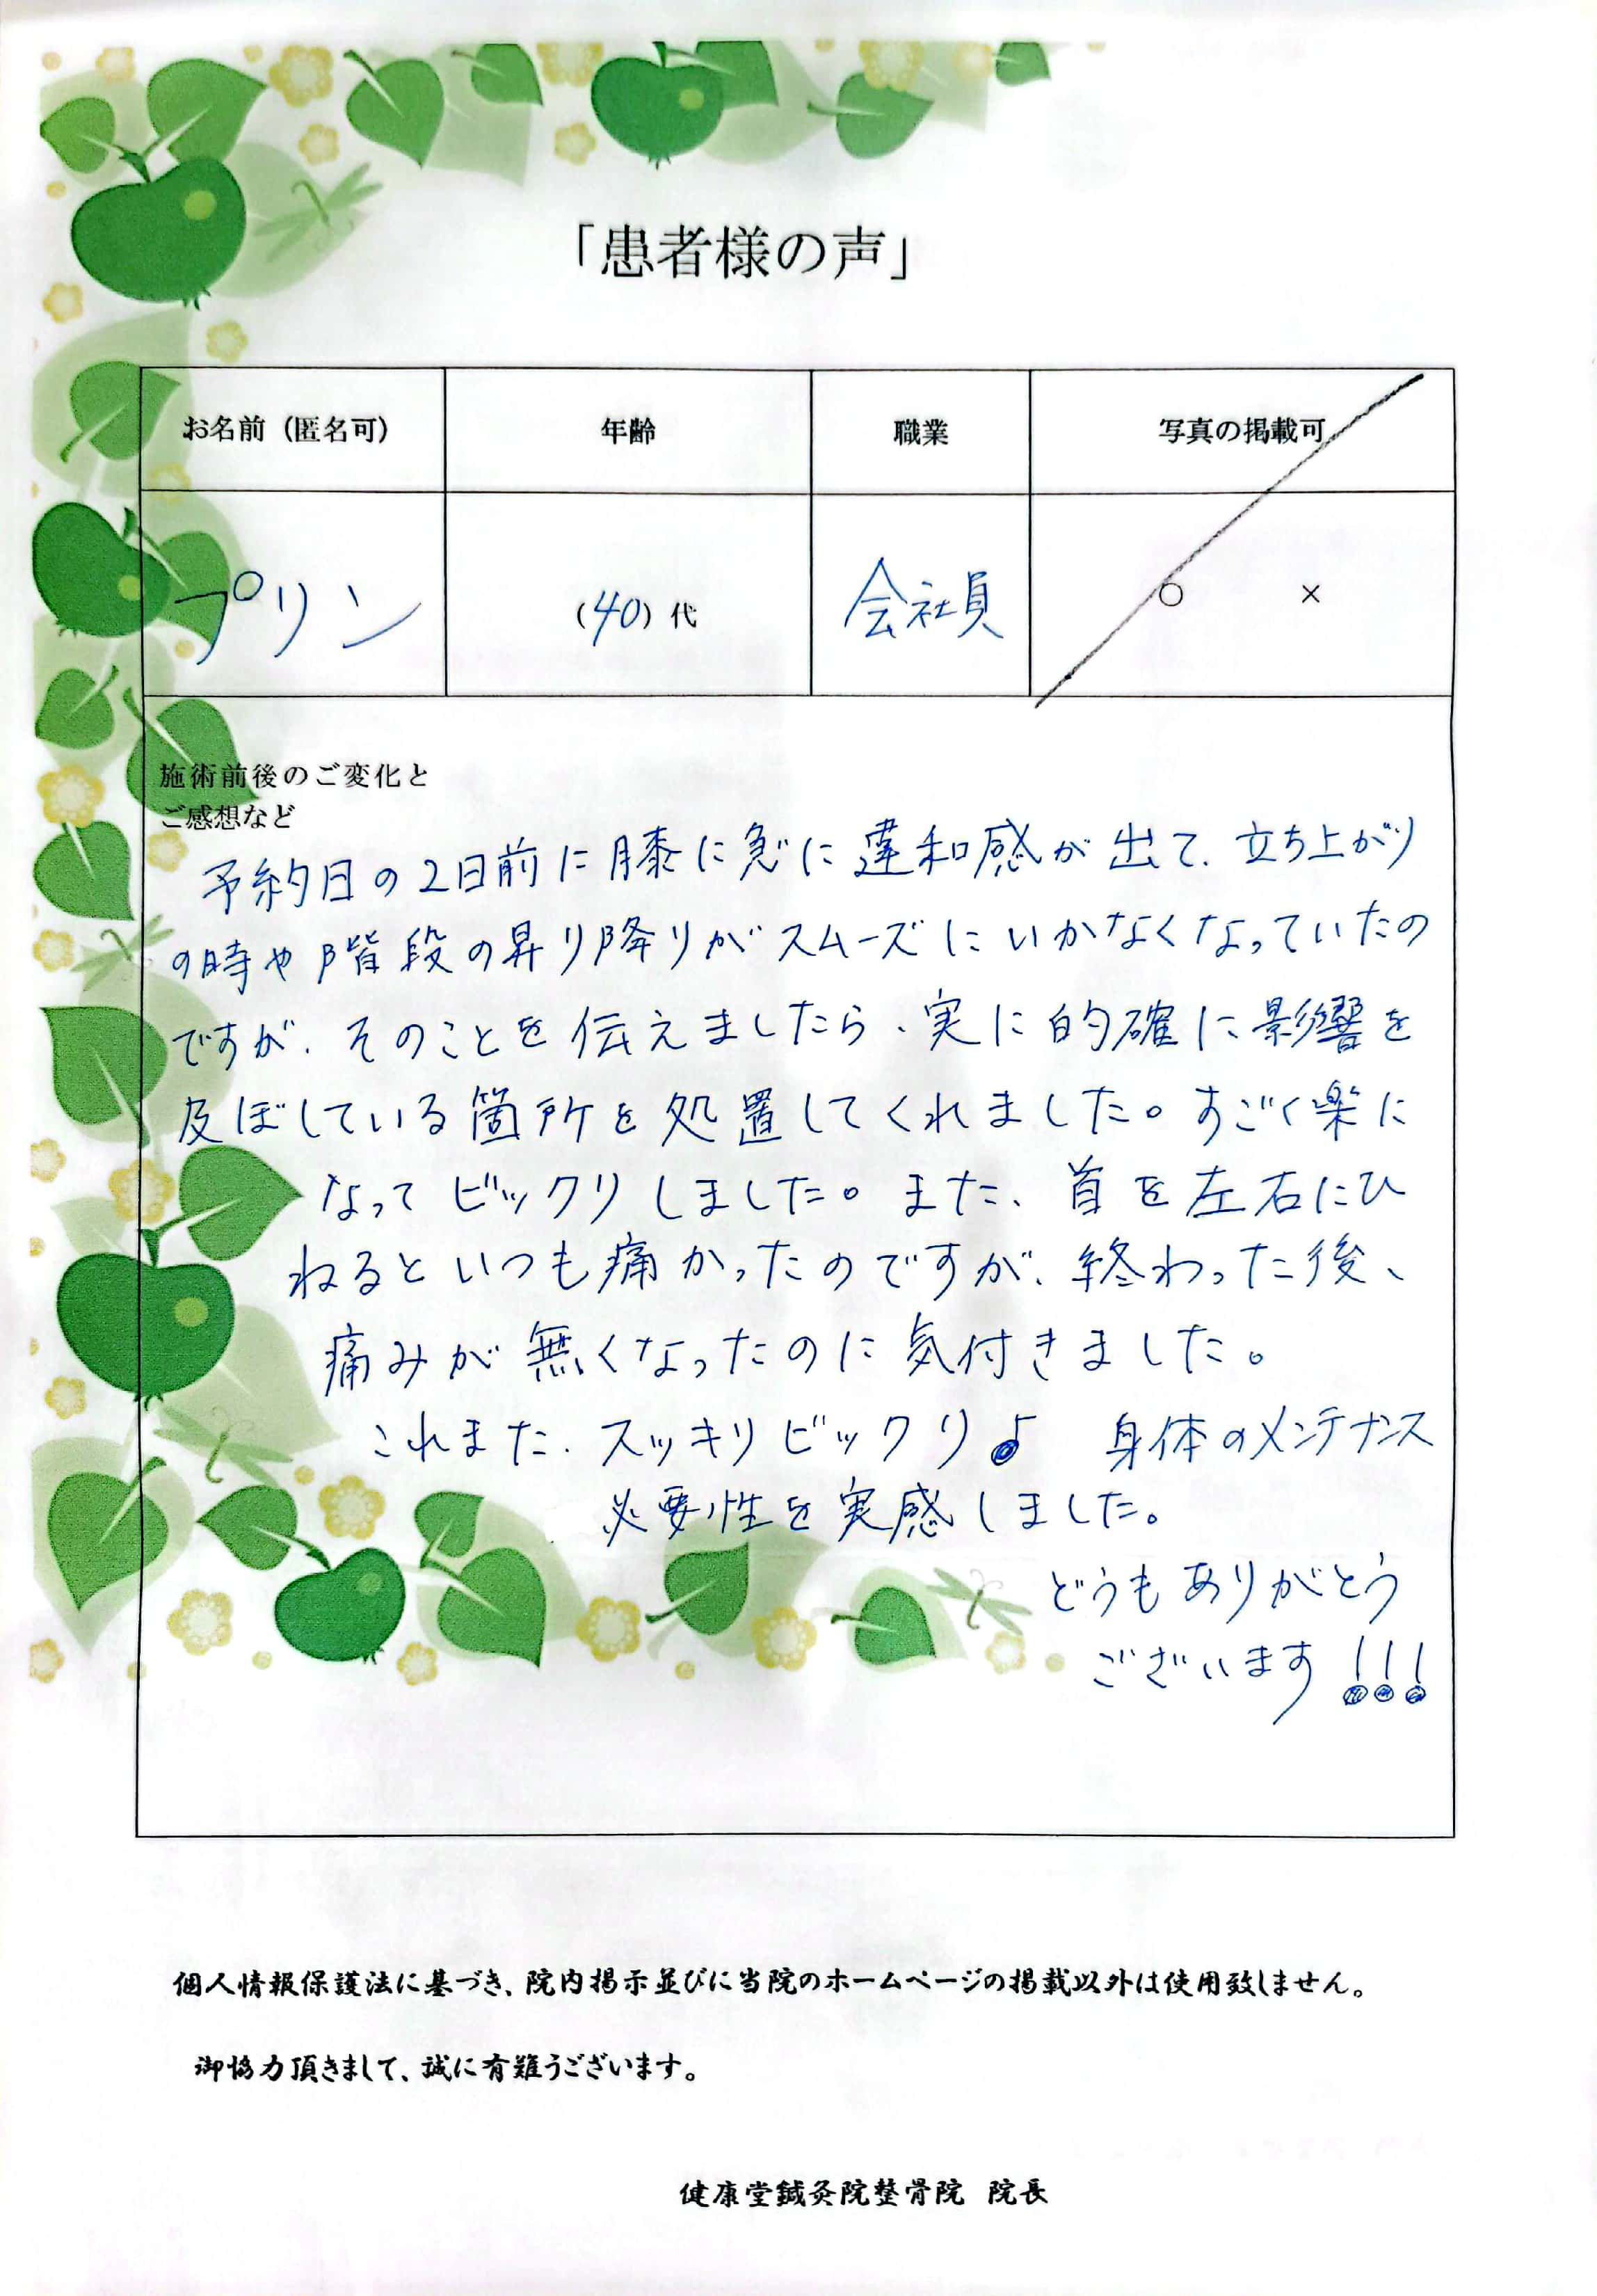 「患者様の声」
お名前（匿名可） 年齢 職業 写真の掲載可
プリン （40）代 会社員 ○ ×
施術前後のご変化と
ご感想など
予約日の2日前に膝に急に違和感が出て、立ち上がり
の時や階段の昇り降りがスムーズにいかなくなっていたの
ですが、そのことを伝えましたら、実に的確に影響を
及ぼしている箇所を処置してくれました。すごく楽に
なってビックリしました。また、首を左右にひ
ねるといつも痛かったのですが、終わった後、
痛みが無くなったのに気付きました。
これまた、スッキリビックリ♪ 身体のメンテナンス
必要性を実感しました。
どうもありがとう
ございます!!!
個人情報保護法に基づき、院内掲示並びに当院のホームページの掲載以外は使用致しません。
御協力頂きまして、誠に有難うございます。
健康堂鍼灸院整骨院 院長